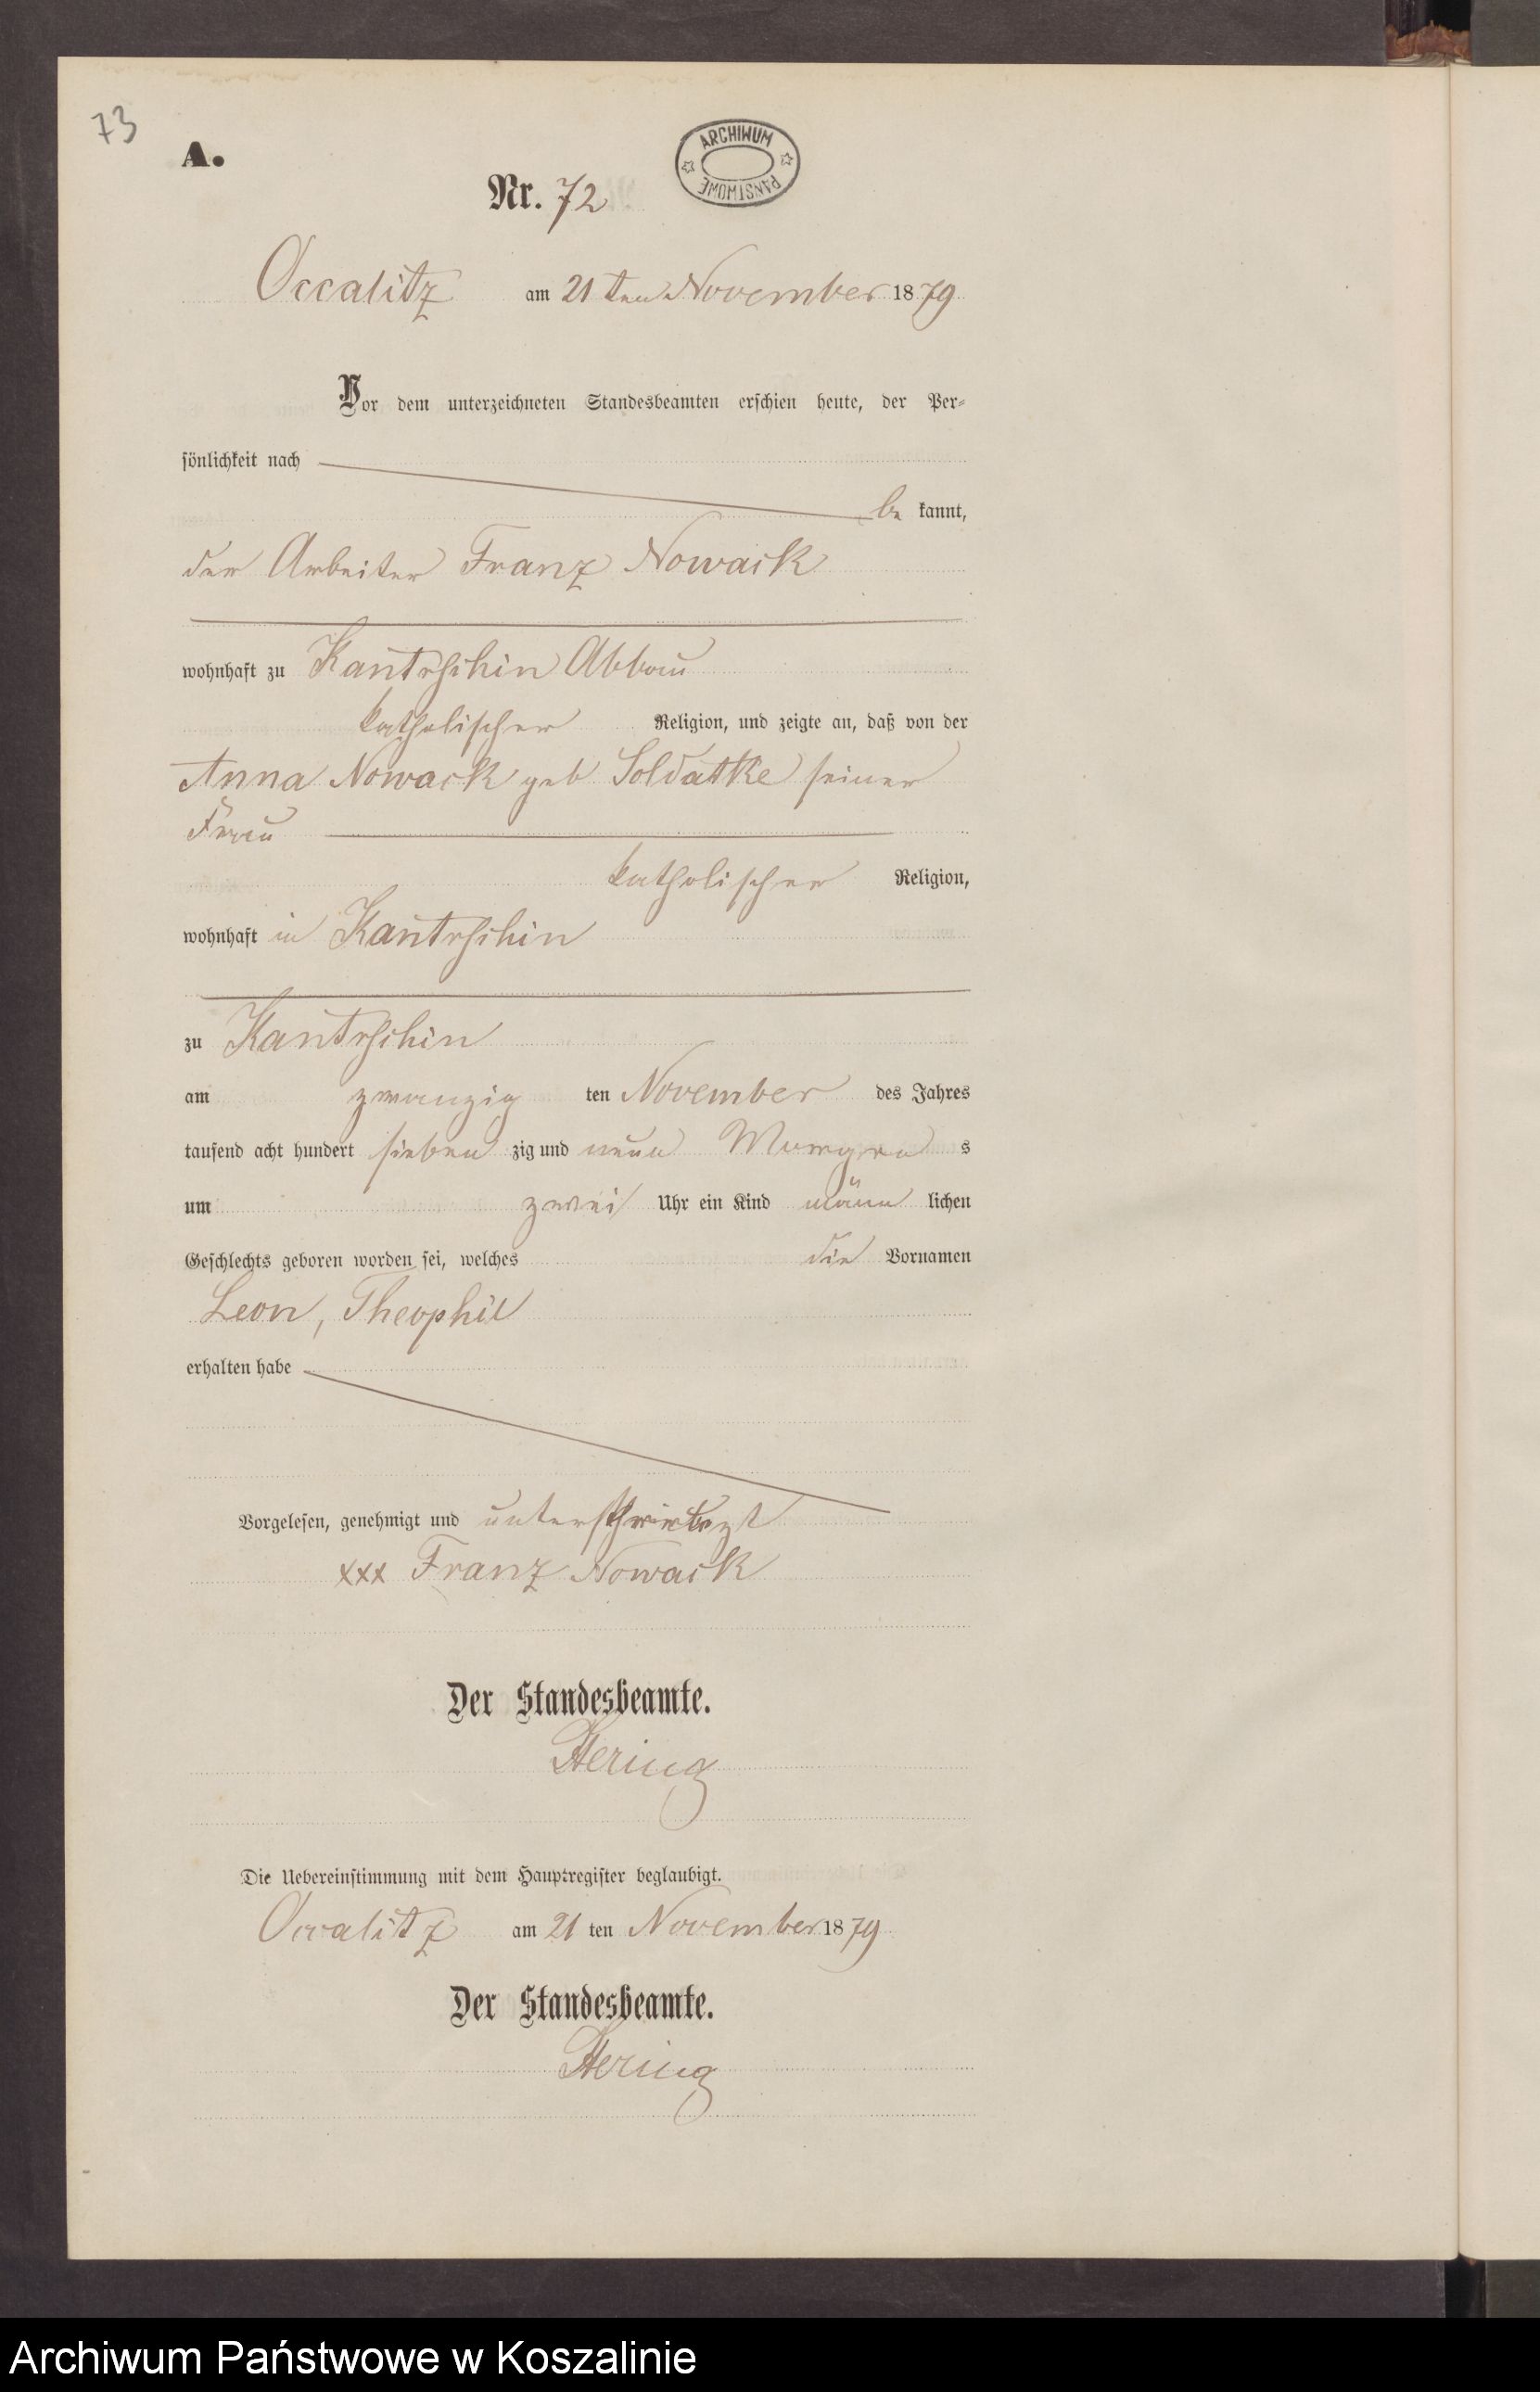 73
A.
ARCHIWUM
PAŃSTWOWE
Nr. 72
Occalitz am 21 ten November 1879
Vor dem unterzeichneten Standesbeamten erschien heute, der Per-
sönlichkeit nach
be kannt,
der Arbeiter Franz Nowack
wohnhaft zu Kantrschin Abbau
katholischer Religion, und zeigte an, daß von der
Anna Nowack geb Soldatke seiner
Frau
katholischer Religion,
wohnhaft in Kantrschin
zu Kantrschin
am zwanzig ten November des Jahres
tausend acht hundert sieben zig und neun Morgen s
um zwei Uhr ein Kind männ lichen
Geschlechts geboren worden sei, welches die Vornamen
Leon, Theophil
erhalten habe
Vorgelesen, genehmigt und
xxx Franz Nowack
Der Standesbeamte.
Hering
Die Uebereinstimmung mit dem Hauptregister beglaubigt.
Occalitz am 21 ten November 1879
Der Standesbeamte.
Hering
Archiwum Państwowe w Koszalinie